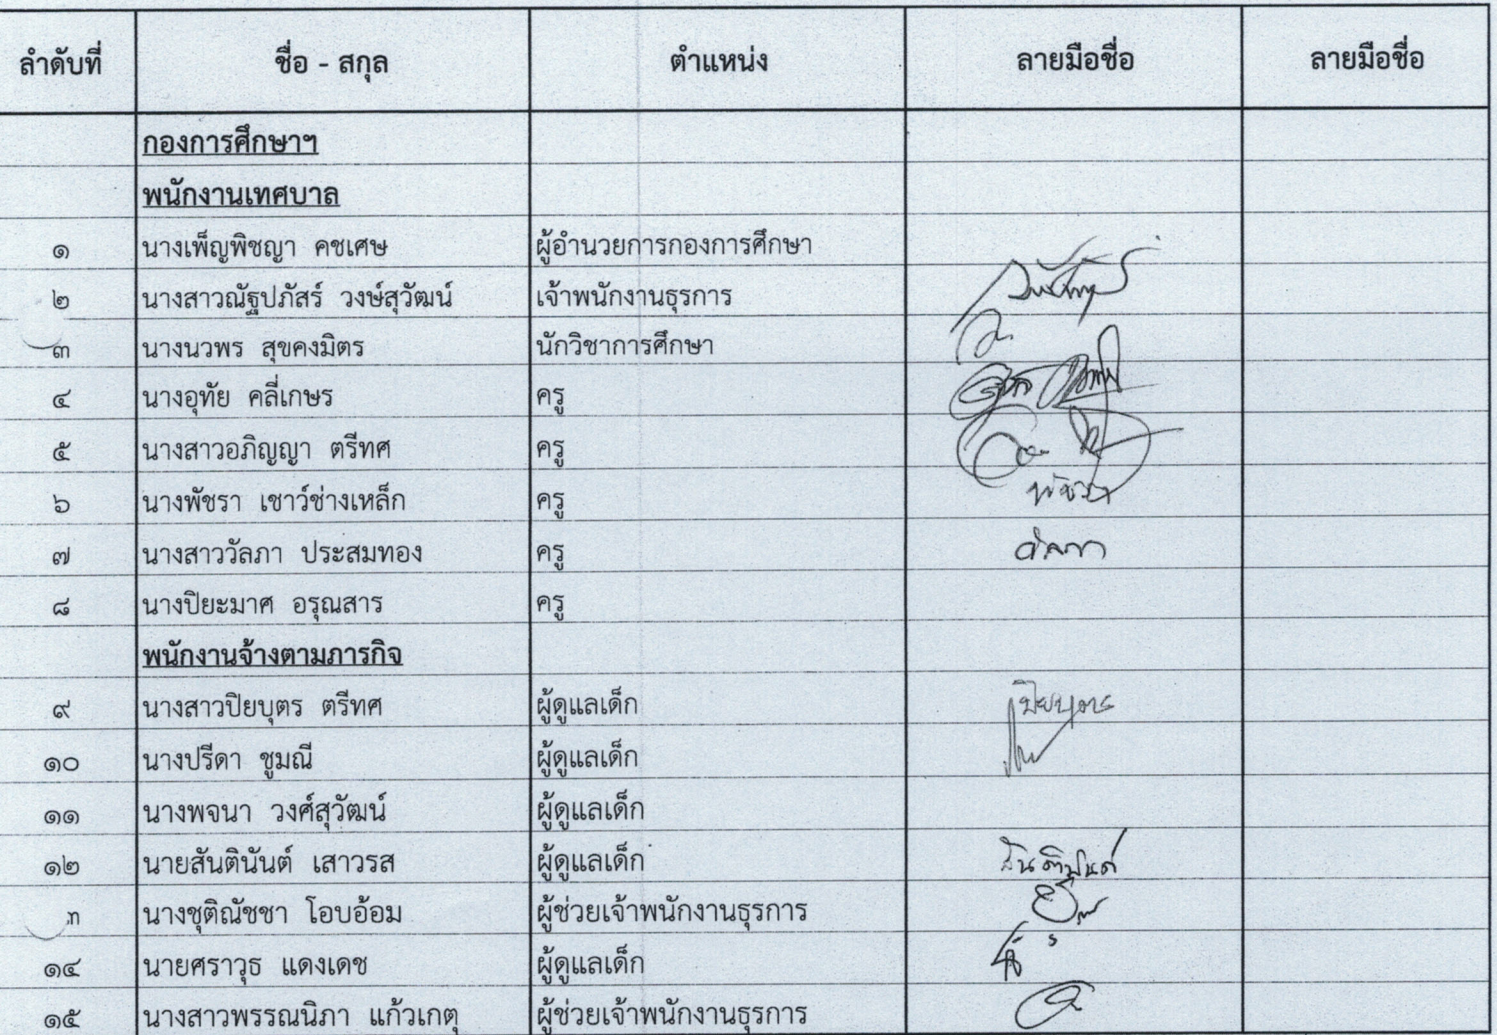 ลำดับที่ ชื่อ - สกุล ตำแหน่ง ลายมือชื่อ ลายมือชื่อ
กองการศึกษาฯ
พนักงานเทศบาล
๑ นางเพ็ญพิชญา คชเศษ ผู้อำนวยการกองการศึกษา
๒ นางสาวณัฐปภัสร์ วงษ์สุวัฒน์ เจ้าพนักงานธุรการ
๓ นางนวพร สุขคงมิตร นักวิชาการศึกษา
๔ นางอุทัย คลี่เกษร ครู
๕ นางสาวอภิญญา ตรีทศ ครู
๖ นางพัชรา เชาว์ช่างเหล็ก ครู พัชรา
๗ นางสาววัลภา ประสมทอง ครู วัลภา
๘ นางปิยะมาศ อรุณสาร ครู
พนักงานจ้างตามภารกิจ
๙ นางสาวปิยบุตร ตรีทศ ผู้ดูแลเด็ก ปิยบุตร
๑๐ นางปรีดา ชูมณี ผู้ดูแลเด็ก
๑๑ นางพจนา วงศ์สุวัฒน์ ผู้ดูแลเด็ก
๑๒ นายสันตินันต์ เสาวรส ผู้ดูแลเด็ก สันตินันต์
๓ นางชุติณัชชา โอบอ้อม ผู้ช่วยเจ้าพนักงานธุรการ
๑๔ นายศราวุธ แดงเดช ผู้ดูแลเด็ก
๑๕ นางสาวพรรณนิภา แก้วเกตุ ผู้ช่วยเจ้าพนักงานธุรการ